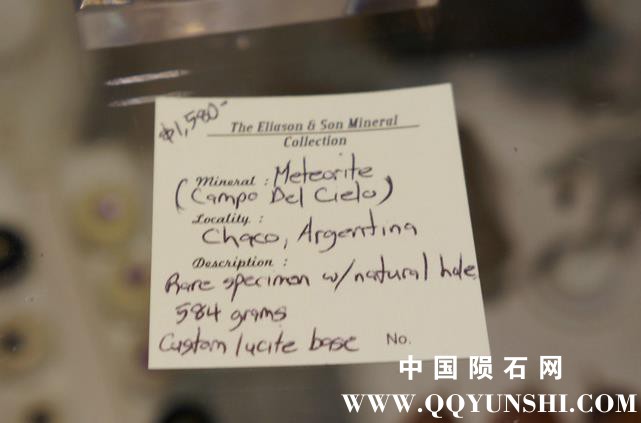 $1,580-
The Eliason & Son Mineral
Collection
Mineral : Meteorite
(Campo Del Cielo)
Locality :
Chaco, Argentina
Description :
Rare specimen w/natural hole
584 grams
Custom lucite base No.
中国陨石网
WWW.QQYUNSHI.COM